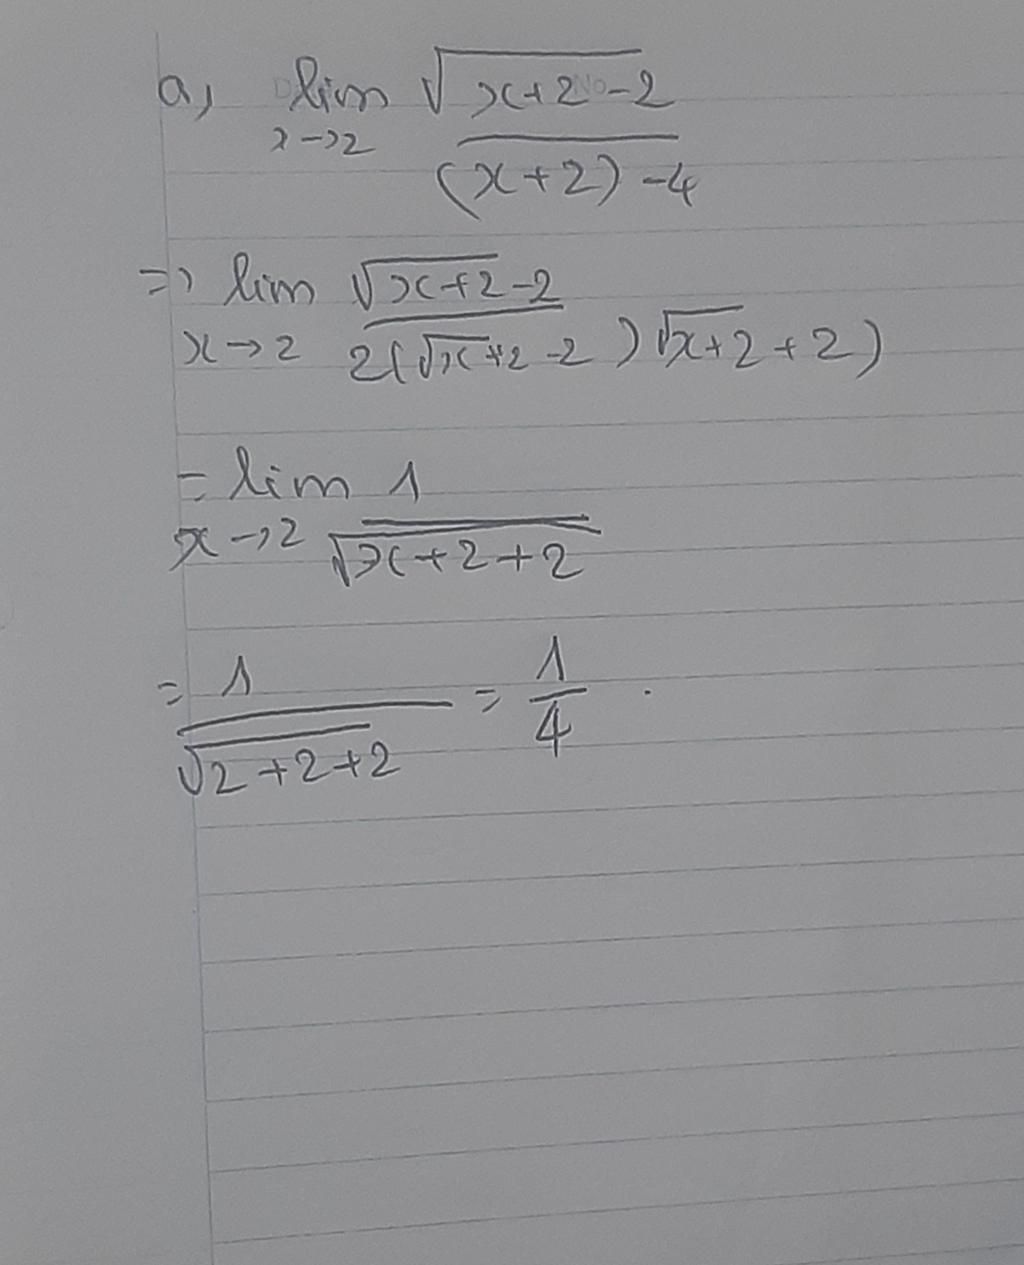 a, lim √x+2-2
x→2 (x+2)-4
=> lim √x+2-2
x→2 2(√x+2-2)√x+2+2)
= lim 1
x→2 √x+2+2
= 1 = 1
√2+2+2 4 .